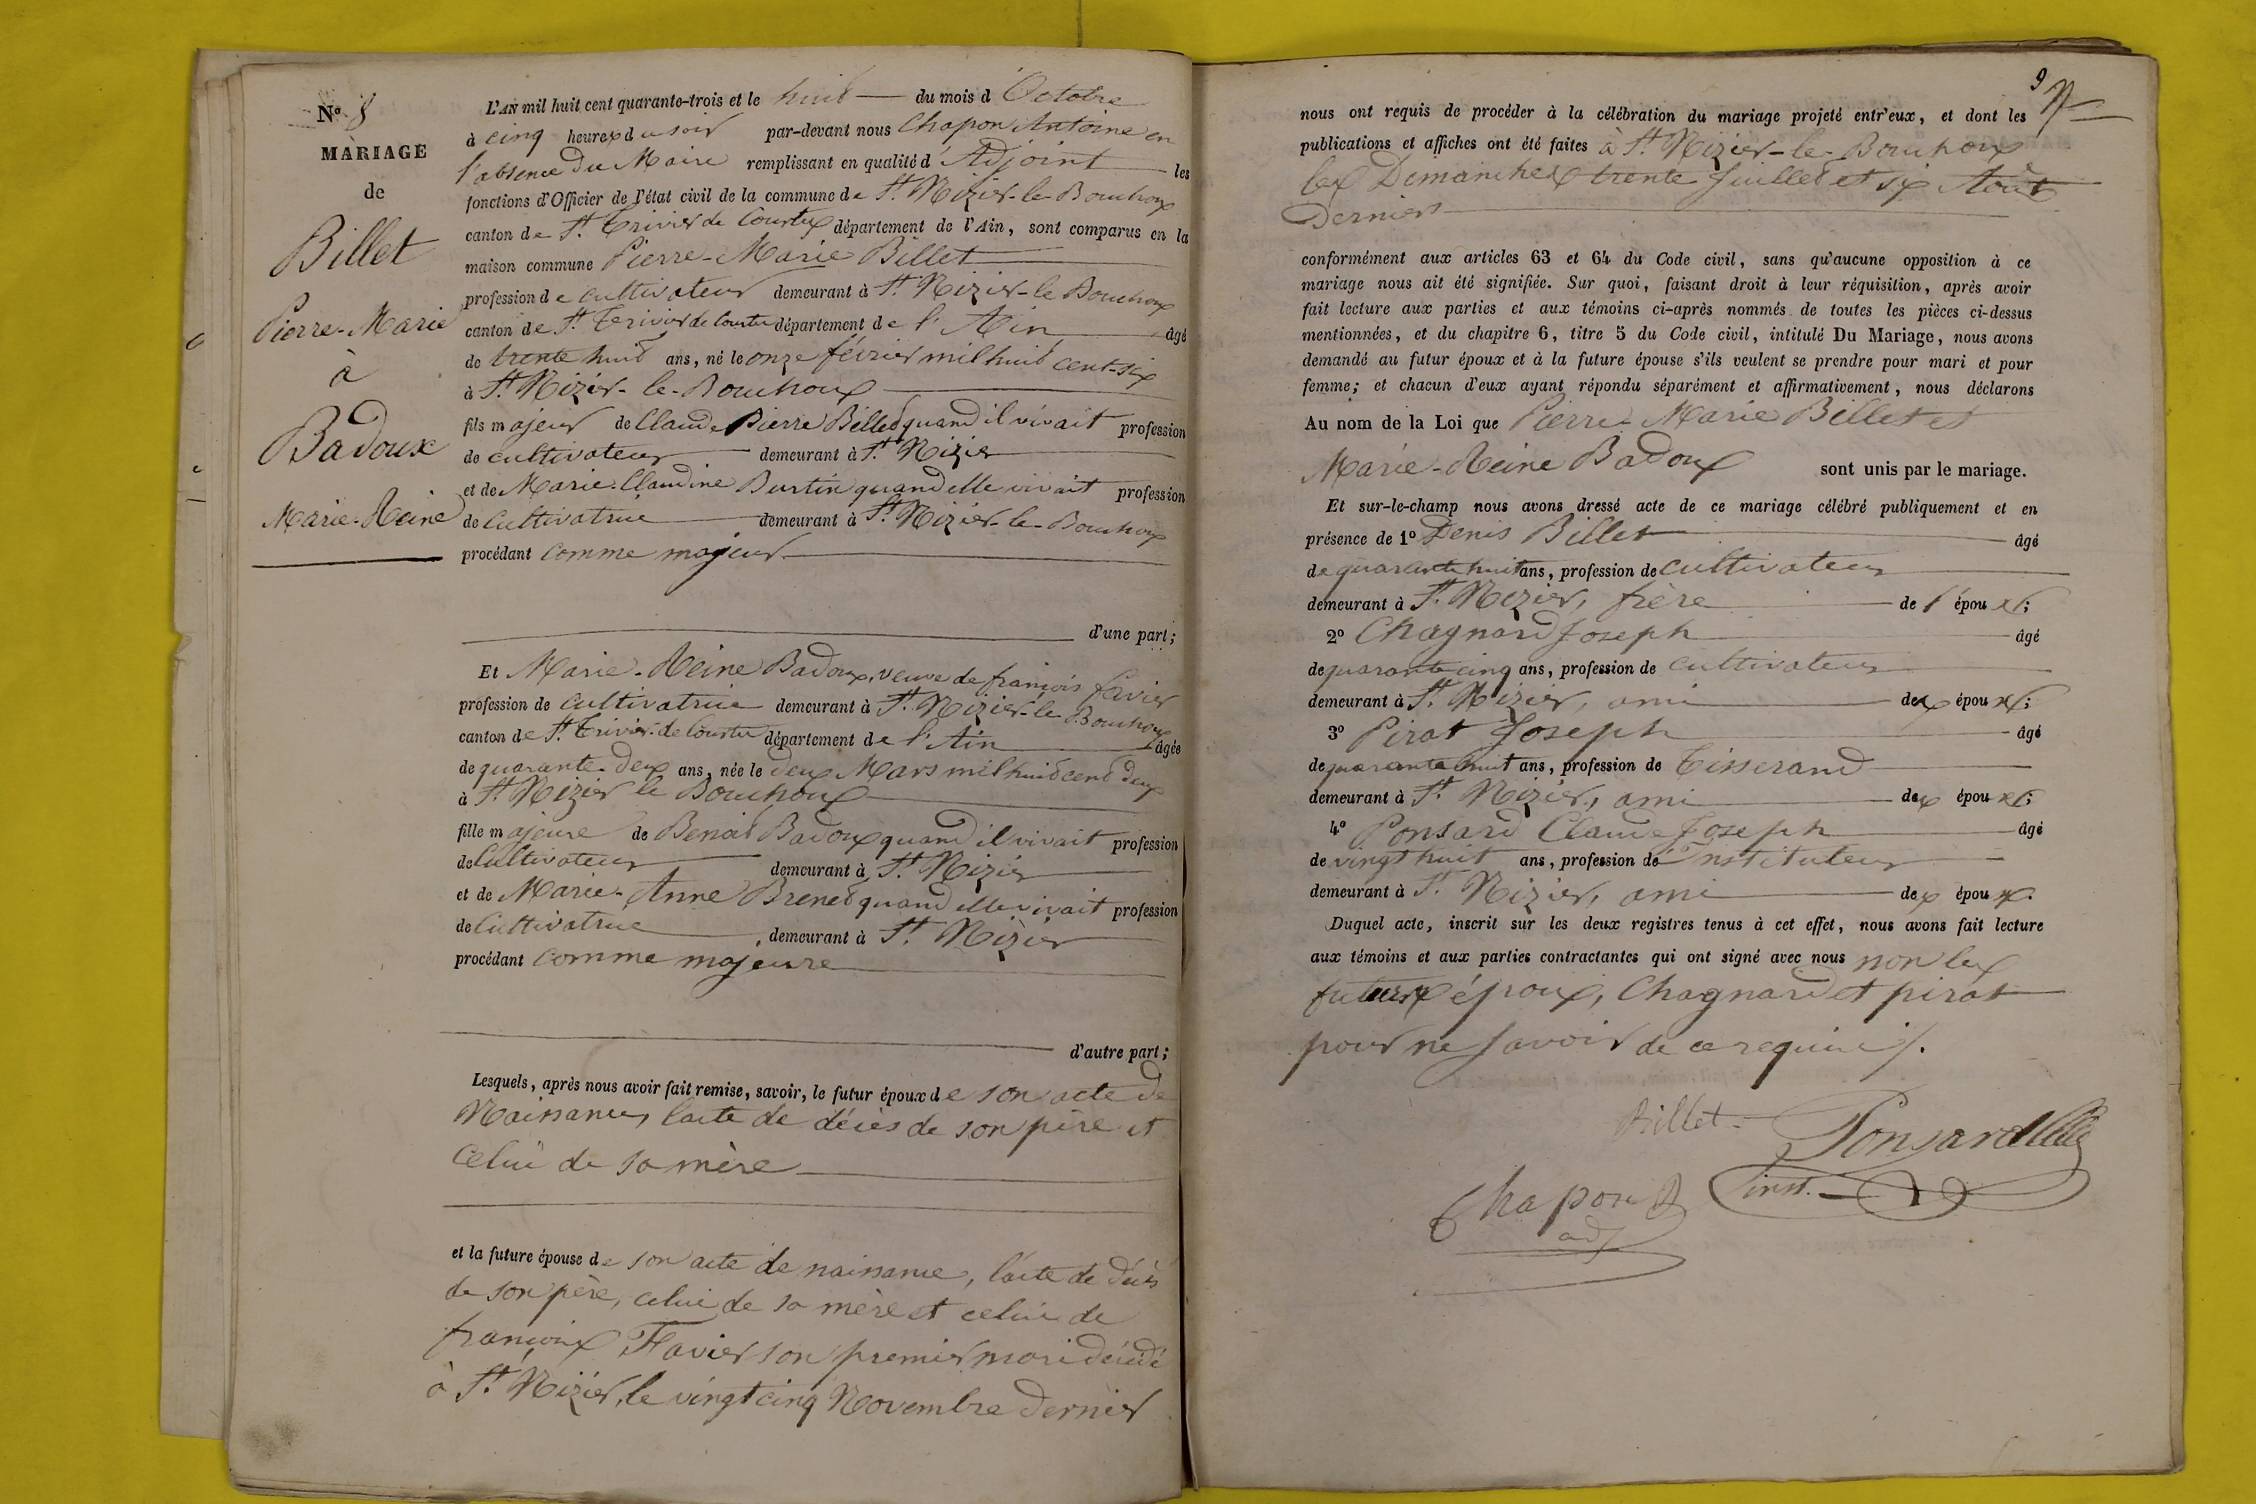 N.º 8
MARIAGE
de
Billet
Pierre-Marie
à
Badoux
Marie-Reine
L'AN mil huit cent quarante-trois et le huit du mois d'Octobre
à cinq heures du soir par-devant nous Chapon Antoine en
l'absence du Maire remplissant en qualité d'Adjoint les
fonctions d'Officier de l'état civil de la commune de St. Nizier-le-Bouchoux
canton de St. Trivier de Courtes département de l'Ain, sont comparus en la
maison commune Pierre-Marie Billet
profession de cultivateur demeurant à St. Nizier-le-Bouchoux
canton de St. Trivier de Courtes département de l'Ain âgé
de trente huit ans, né le onze février mil huit cent-six
à St. Nizier-le-Bouchoux
fils majeur de Claude Pierre Billet quand il vivait profession
de cultivateur demeurant à St. Nizier
et de Marie-Claudine Burtin quand elle vivait profession
de cultivatrice demeurant à St. Nizier-le-Bouchoux
procédant comme majeur
d'une part;
Et Marie-Reine Badoux, veuve de françois favier
profession de cultivatrice demeurant à St. Nizier-le-Bouchoux
canton de St. Trivier-de Courtes département de l'Ain âgée
de quarante-deux ans, née le deux Mars mil huit cent deux
à St. Nizier le Bouchoux
fille majeure de Benoit Badoux quand il vivait profession
de Cultivateur demeurant à St. Nizier
et de Marie-Anne Brenet quand elle vivait profession
de Cultivatrice demeurant à St. Nizier
procédant comme majeure
d'autre part;
Lesquels, après nous avoir fait remise, savoir, le futur époux de son acte de
Naissance, l'acte de décès de son père et
celui de sa mère
et la future épouse de son acte de naissance, l'acte de décès
de son père, celui de sa mère et celui de
françois Favier son premier mari décédé
à St. Nizier, le vingt cinq Novembre dernier
9
nous ont requis de procéder à la célébration du mariage projeté entr'eux, et dont les
publications et affiches ont été faites à St. Nizier-le-Bouchoux
les Dimanches trente Juillet et six Août
Derniers
conformément aux articles 63 et 64 du Code civil, sans qu'aucune opposition à ce
mariage nous ait été signifiée. Sur quoi, faisant droit à leur réquisition, après avoir
fait lecture aux parties et aux témoins ci-après nommés de toutes les pièces ci-dessus
mentionnées, et du chapitre 6, titre 5 du Code civil, intitulé Du Mariage, nous avons
demandé au futur époux et à la future épouse s'ils veulent se prendre pour mari et pour
femme; et chacun d'eux ayant répondu séparément et affirmativement, nous déclarons
Au nom de la Loi que Pierre-Marie Billet et
Marie-Reine Badoux sont unis par le mariage.
Et sur-le-champ nous avons dressé acte de ce mariage célébré publiquement et en
présence de 1º Denis Billet âgé
de quarante huit ans, profession de cultivateur
demeurant à St. Nizier, frère de l'époux;
2º Chagnard Joseph âgé
de quarante cinq ans, profession de cultivateur
demeurant à St. Nizier, ami des époux;
3º Pirat Joseph âgé
de quarante huit ans, profession de Tisserand
demeurant à St. Nizier, ami des époux;
4º Ponsard Claude Joseph âgé
de vingt huit ans, profession de Instituteur
demeurant à St. Nizier, ami des époux.
Duquel acte, inscrit sur les deux registres tenus à cet effet, nous avons fait lecture
aux témoins et aux parties contractantes qui ont signé avec nous non les
futurs époux, Chagnard et pirat
pour ne savoir de ce requis.
Billet Ponsard
Chapon inst.
adj